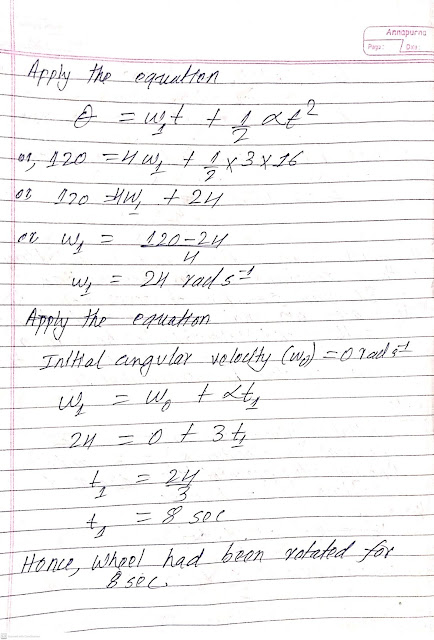 Annapurna
Page: Date:
Apply the equation
θ = ω₁t + 1/2 αt²
or, 120 = 4ω₁ + 1/2 × 3 × 16
or 120 = 4ω₁ + 24
or ω₁ = 120-24/4
ω₁ = 24 rad s⁻¹
Apply the equation
Initial angular velocity (ω₀) = 0 rad s⁻¹
ω₁ = ω₀ + αt₁
24 = 0 + 3t₁
t₁ = 24/3
t₁ = 8 sec
Hence, Wheel had been rotated for
8 sec.